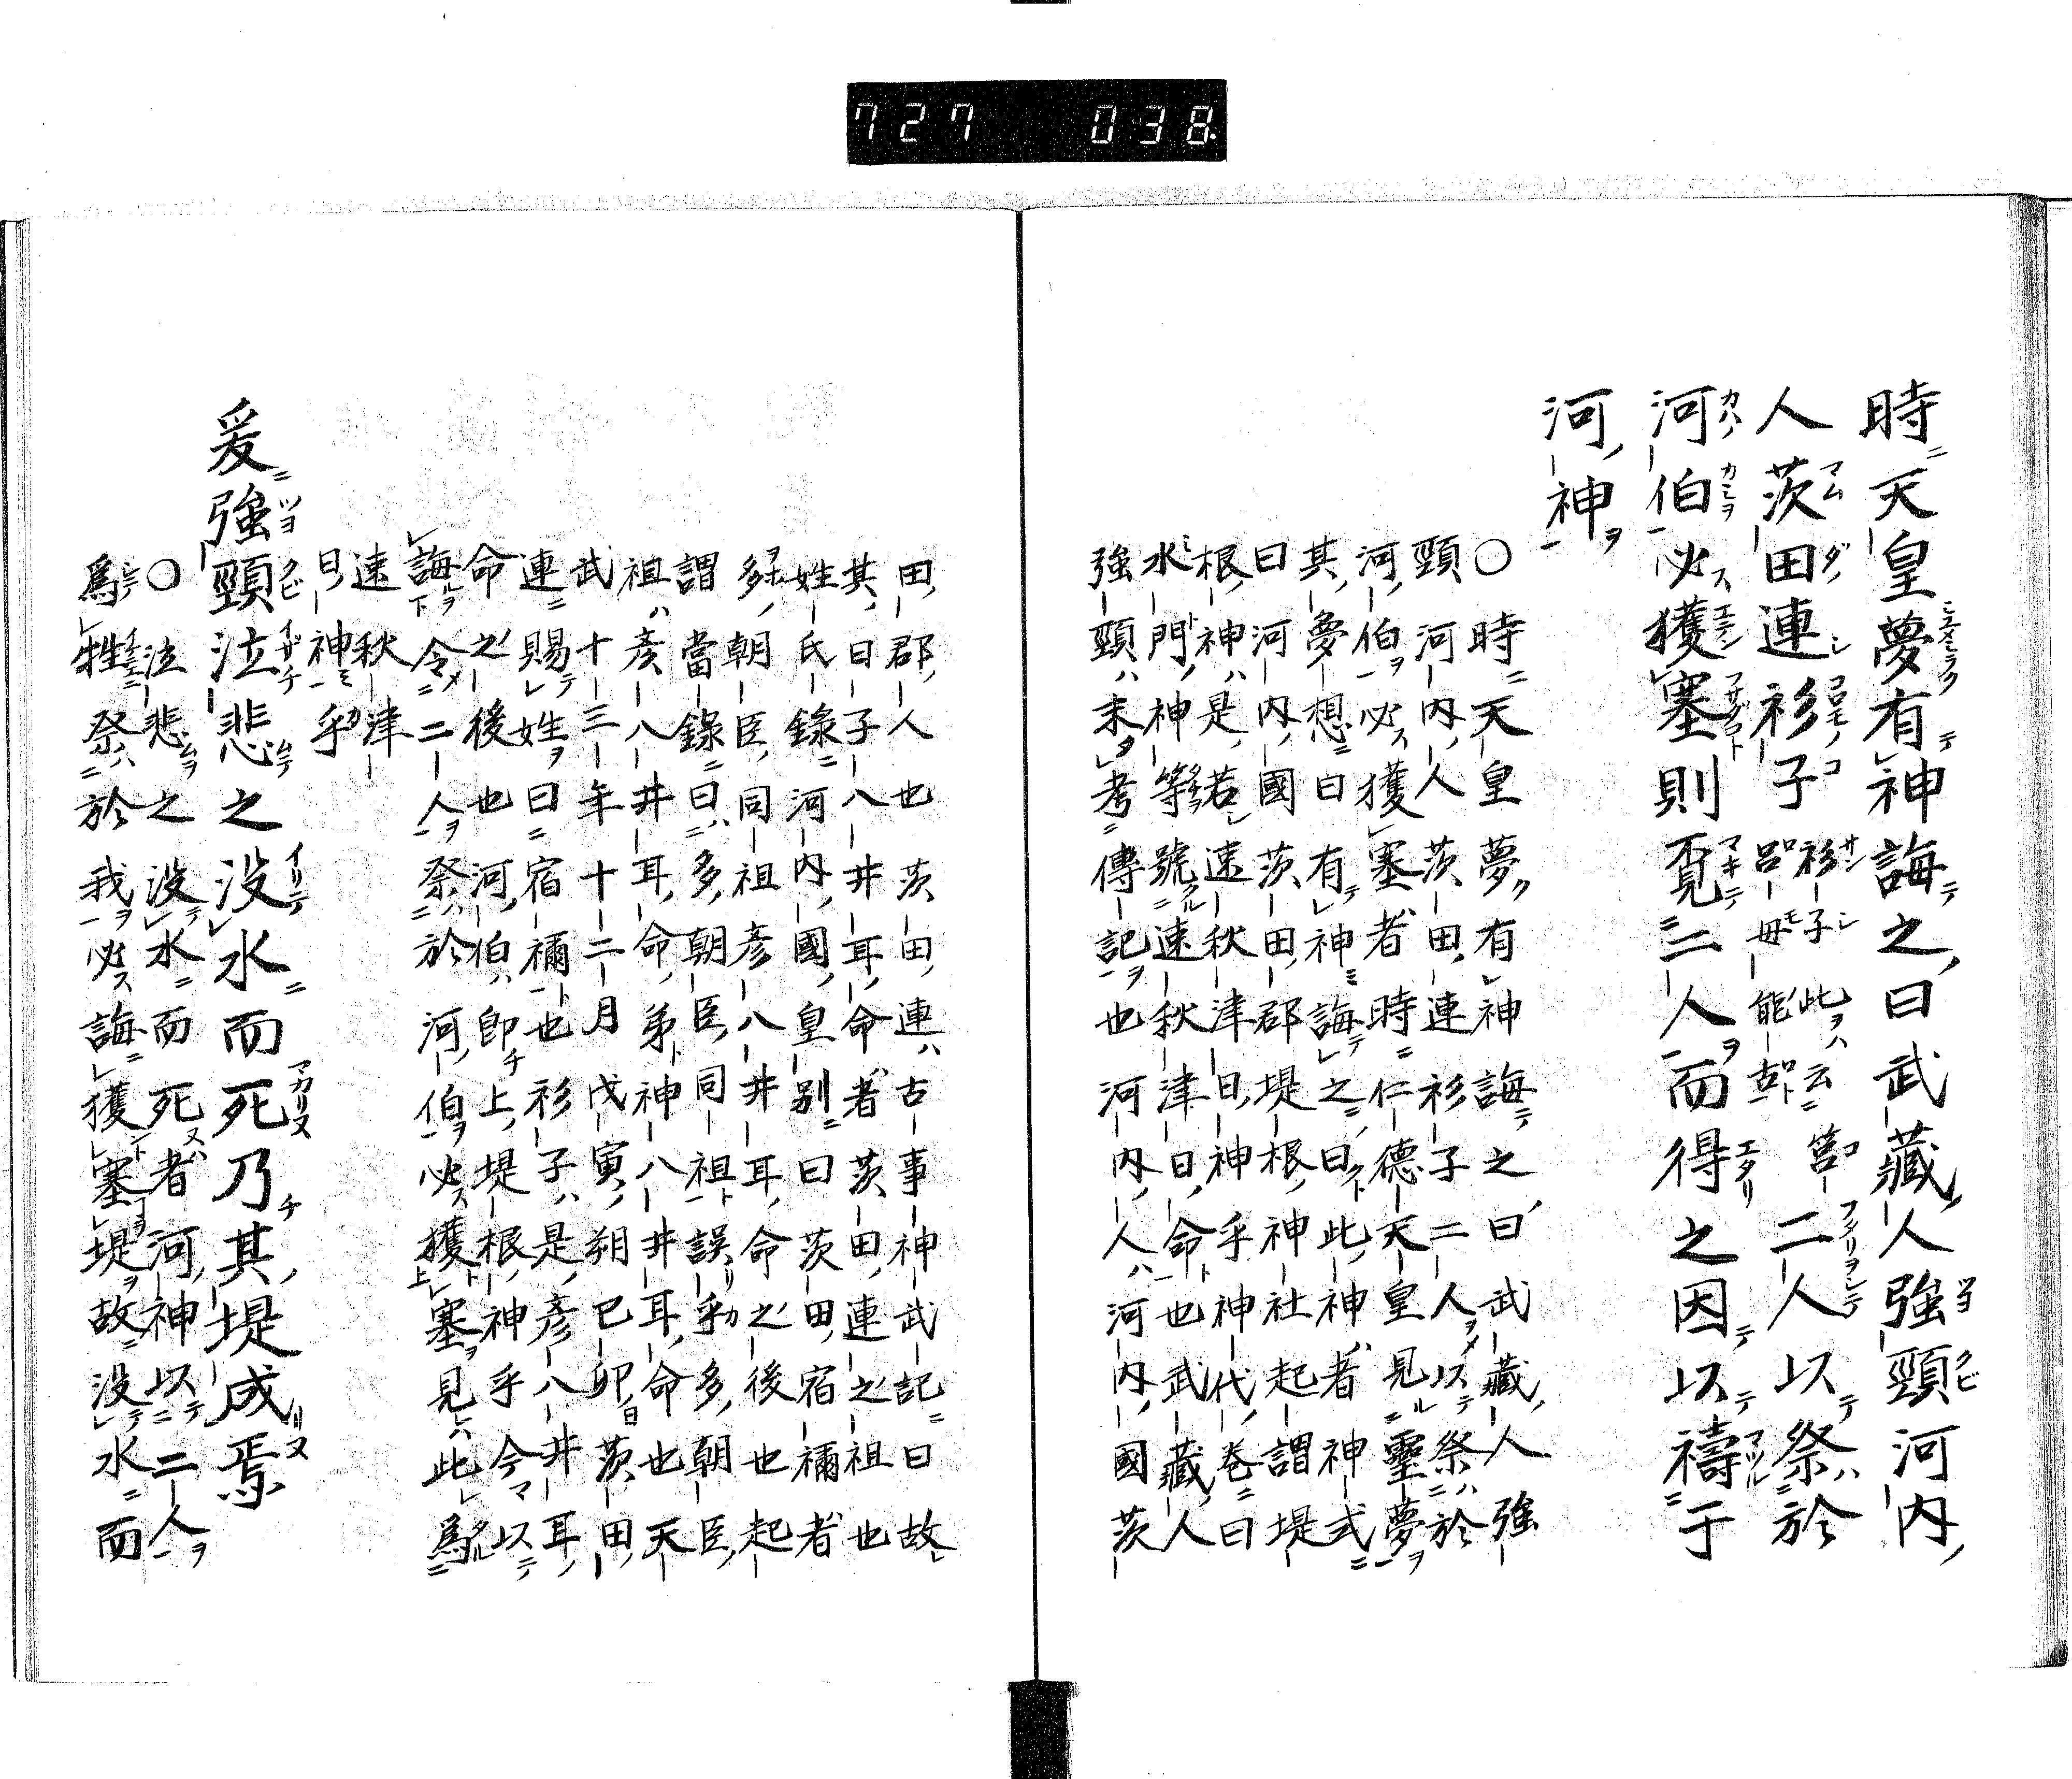 727 038
時天皇夢有神誨之曰武藏人強頸河内
人茨田連衫子衫子此云莒呂母能古二人以祭於
河伯必獲塞則覓二人而得之因以禱于
河神
○時天皇夢有神誨之曰武藏人強
頸河内人茨田連衫子二人以祭於
河伯必獲塞者時仁德天皇見靈夢
其夢想曰有神誨之曰此神者神式
曰河内國茨田郡堤根神社起謂堤
根神是若速秋津日神乎神代卷曰
水門神等號速秋津日命也武藏人
強頸未考傳記也河内人河内國茨
田郡人也茨田連古事神武記曰故
其日子八井耳命者茨田連之祖也
姓氏錄河内國皇別曰茨田宿禰者
多朝臣同祖彦八井耳命之後也起
謂當錄曰多朝臣同祖誤乎多朝臣
祖彦八井耳命弟神八井耳命也天
武十三年十二月戊寅朔巳卯日茨田
連賜姓曰宿禰也衫子是彦八井耳
命之後也河伯即上堤根神乎今以
誨令二人祭於河伯必獲塞見此爲
速秋津
日神乎
爰強頸泣悲之没水而死乃其堤成焉
○泣悲之没水而死者河神以二人
爲牲祭於我必誨獲塞堤故没水而